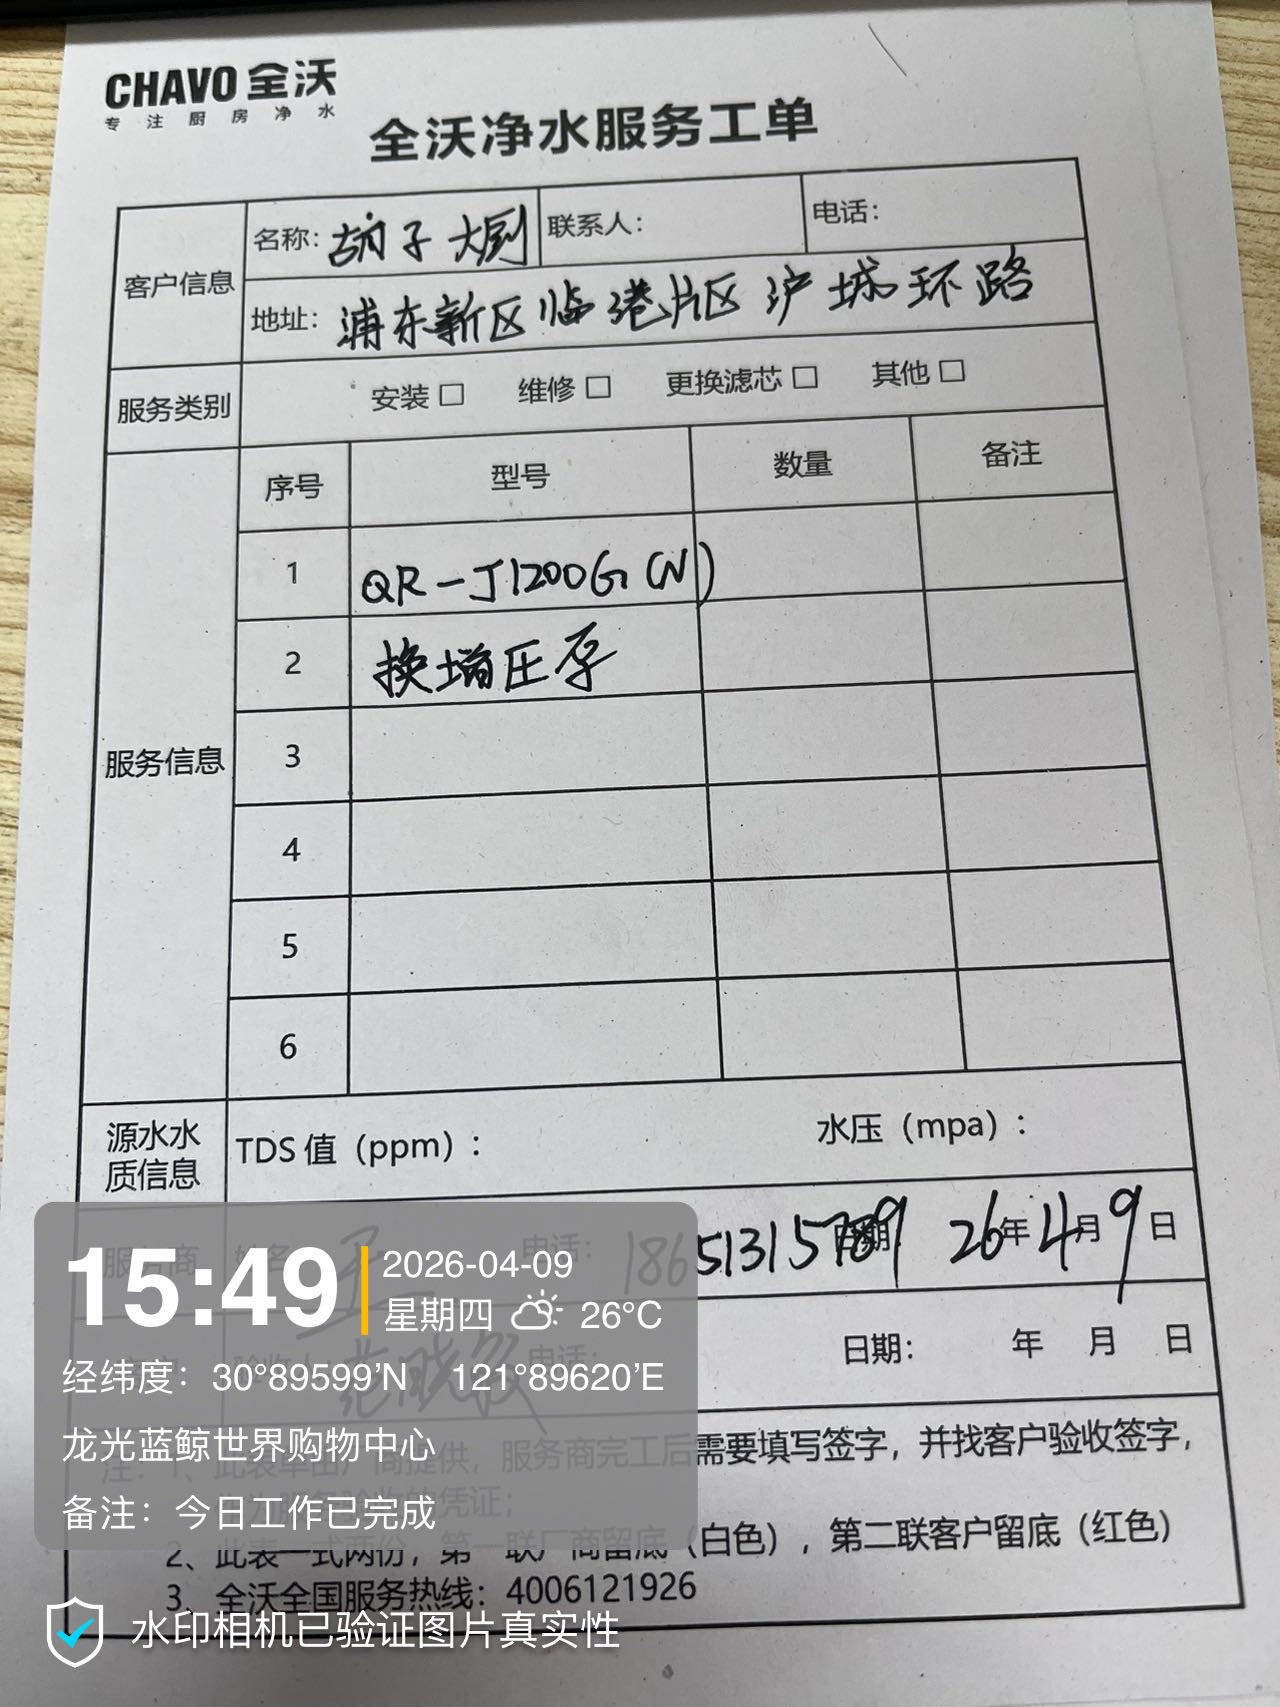 CHAVO 全沃
专注厨房净水
全沃净水服务工单
客户信息
名称：胡子大厨
联系人：
电话：
地址：浦东新区临港片区沪城环路
服务类别
安装□ 维修□ 更换滤芯□ 其他□
服务信息
序号 型号 数量 备注
1 QR-J1200G(N)
2 换增压泵
3
4
5
6
源水水质信息
TDS 值（ppm）： 水压（mpa）：
服务商 姓名 王 电话： 18651315789 日期 26年4月9日
电话： 日期： 年 月 日
注：1、此表单由厂商提供，服务商完工后需要填写签字，并找客户验收签字，
凭证；
2、此表一式两份，第一联厂商留底（白色），第二联客户留底（红色）
3、全沃全国服务热线：4006121926
15:49
2026-04-09
星期四 26°C
经纬度：30°89599'N 121°89620'E
龙光蓝鲸世界购物中心
备注：今日工作已完成
水印相机已验证图片真实性